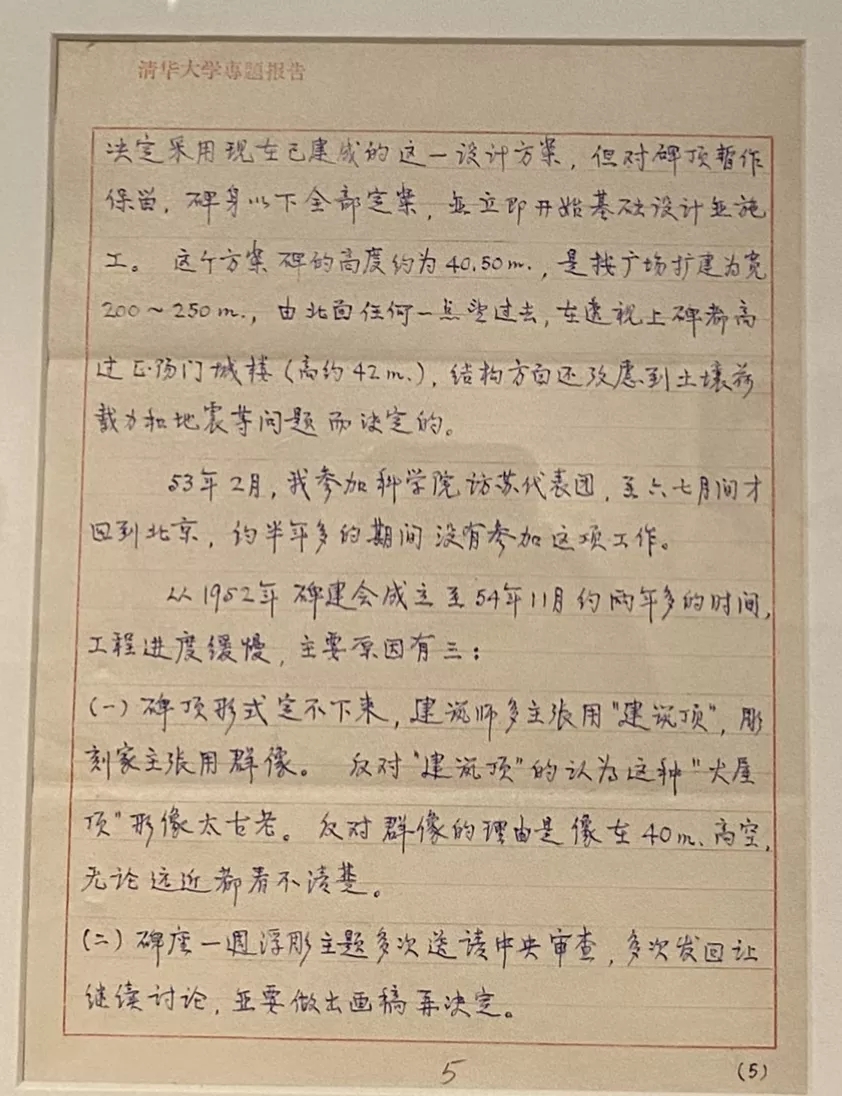 清华大学專題报告
决定采用现在已建成的这一设计方案，但对碑顶暂作
保留，碑身以下全部定案，並立即开始基础设计並施
工。 这个方案碑的高度约为40.50m.，是按广场扩建为宽
200～250m.，由北面任何一点望过去，在透视上碑都高
过正阳门城楼(高约42m.)，结构方面还攷虑到土壤荷
载力和地震等问题而决定的。
53年2月，我参加科学院访苏代表团，至六七月间才
回到北京，约半年多的期间没有参加这项工作。
从1952年碑建会成立至54年11月约两年多的时间，
工程进度缓慢，主要原因有三：
(一)碑顶形式定不下来，建筑师多主张用"建筑顶"，彫
刻家主张用群像。 反对"建筑顶"的认为这种"大屋
顶"形像太古老。反对群像的理由是像在40m.高空，
无论远近都看不清楚。
(二)碑座一週浮彫主题多次送请中央审查，多次发回让
继续讨论，並要做出画稿再决定。
5
(5)